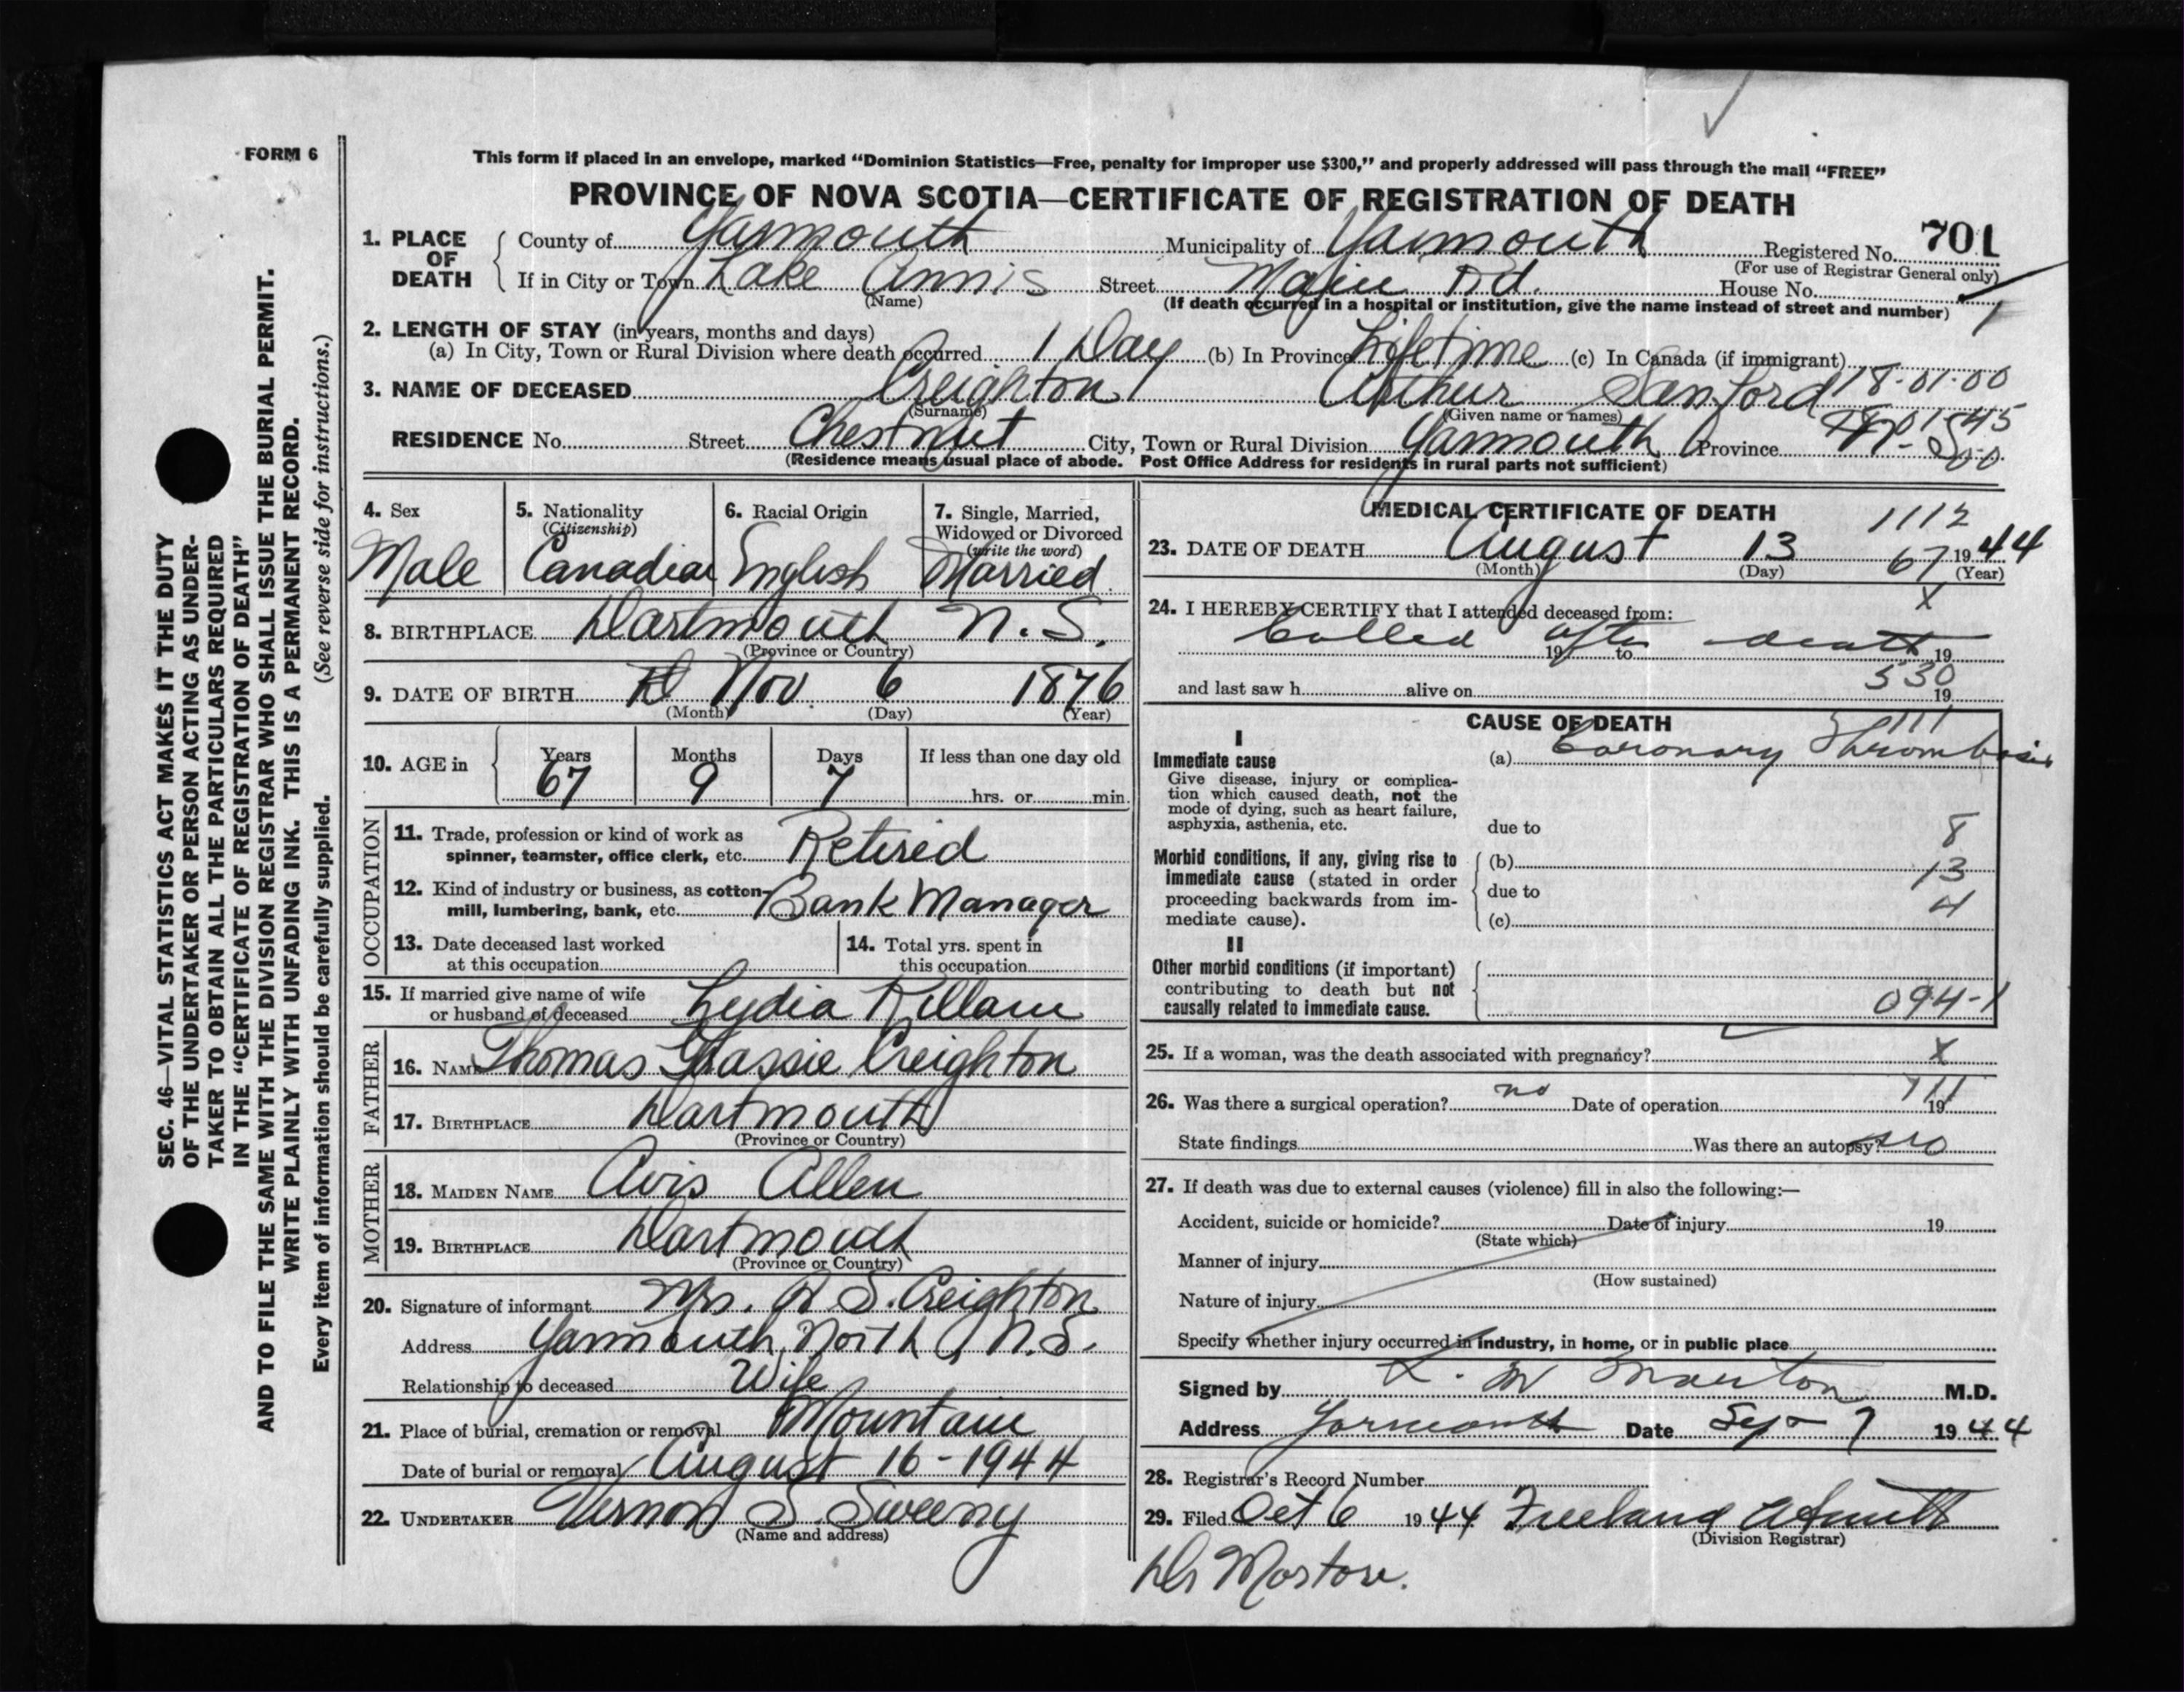 FORM 6
This form if placed in an envelope, marked “Dominion Statistics—Free, penalty for improper use $300,” and properly addressed will pass through the mail “FREE”
PROVINCE OF NOVA SCOTIA—CERTIFICATE OF REGISTRATION OF DEATH
701
1. PLACE OF DEATH County of Yarmouth Municipality of Yarmouth Registered No.
(For use of Registrar General only)
If in City or Town Lake Annis Street Rd. House No.
(Name) (If death occurred in a hospital or institution, give the name instead of street and number) 1
2. LENGTH OF STAY (in years, months and days)
(a) In City, Town or Rural Division where death occurred 1 Day (b) In Province Lifetime (c) In Canada (if immigrant)
3. NAME OF DECEASED Creighton Arthur Sanford 18-01-00
(Surname) (Given name or names)
RESIDENCE No. Street Chestnut City, Town or Rural Division Yarmouth Province N. S.
(Residence means usual place of abode. Post Office Address for residents in rural parts not sufficient)
4. Sex 5. Nationality (Citizenship) 6. Racial Origin 7. Single, Married, Widowed or Divorced (write the word)
Male Canadian English Married
8. BIRTHPLACE Dartmouth N.S.
(Province or Country)
9. DATE OF BIRTH Nov 6 1876
(Month) (Day) (Year)
10. AGE in Years Months Days If less than one day old
67 9 7 hrs. or min.
OCCUPATION
11. Trade, profession or kind of work as
spinner, teamster, office clerk, etc. Retired
12. Kind of industry or business, as cotton-
mill, lumbering, bank, etc. Bank Manager
13. Date deceased last worked at this occupation
14. Total yrs. spent in this occupation
15. If married give name of wife
or husband of deceased Lydia Killam
FATHER
16. NAME Thomas Grassie Creighton
17. BIRTHPLACE Dartmouth
(Province or Country)
MOTHER
18. MAIDEN NAME Avis Allen
19. BIRTHPLACE Dartmouth
(Province or Country)
20. Signature of informant Mrs. A. S. Creighton
Address Yarmouth North, N.S.
Relationship to deceased Wife
21. Place of burial, cremation or removal Mountain
Date of burial or removal August 16-1944
22. UNDERTAKER Vernon S. Sweeny
(Name and address)
MEDICAL CERTIFICATE OF DEATH
1112
23. DATE OF DEATH August 13 67 1944
(Month) (Day) (Year)
X
24. I HEREBY CERTIFY that I attended deceased from:
Called after death
19 to 19
530
and last saw h alive on 19
CAUSE OF DEATH
I
Immediate cause
Give disease, injury or complica-
tion which caused death, not the
mode of dying, such as heart failure,
asphyxia, asthenia, etc.
(a) Coronary Thrombosis
due to 8
Morbid conditions, if any, giving rise to
immediate cause (stated in order
proceeding backwards from im-
mediate cause).
(b) 13
due to 4
(c)
II
Other morbid conditions (if important)
contributing to death but not
causally related to immediate cause.
094-1
25. If a woman, was the death associated with pregnancy? X
26. Was there a surgical operation? no Date of operation 19
State findings Was there an autopsy? no
27. If death was due to external causes (violence) fill in also the following:—
Accident, suicide or homicide? Date of injury 19
(State which)
Manner of injury
(How sustained)
Nature of injury
Specify whether injury occurred in industry, in home, or in public place
Signed by L. M. Morton M.D.
Address Yarmouth Date Sep 7 1944
28. Registrar's Record Number
29. Filed Oct 6 1944 Freeland
(Division Registrar)
Dr Morton.
SEC. 46—VITAL STATISTICS ACT MAKES IT THE DUTY
OF THE UNDERTAKER OR PERSON ACTING AS UNDER-
TAKER TO OBTAIN ALL THE PARTICULARS REQUIRED
IN THE “CERTIFICATE OF REGISTRATION OF DEATH”
AND TO FILE THE SAME WITH THE DIVISION REGISTRAR WHO SHALL ISSUE THE BURIAL PERMIT.
WRITE PLAINLY WITH UNFADING INK. THIS IS A PERMANENT RECORD.
Every item of information should be carefully supplied. (See reverse side for instructions.)